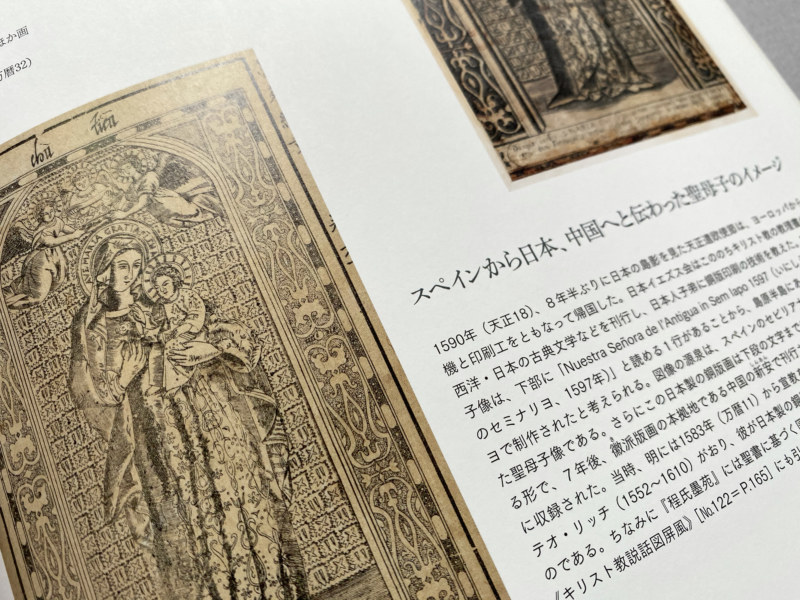 ほか画
万暦32)
スペインから日本、中国へと伝わった聖母子のイメージ
1590年（天正18）、８年半ぶりに日本の島影を見た天正遣欧使節は、ヨーロッパから
機と印刷工をともなって帰国した。日本イエズス会はこののちキリスト教の教理書
西洋・日本の古典文学などを刊行し、日本人子弟に銅版印刷の技術を教えた。
子像は、下部に「Nuestra Señora de l'Antigua in Sem Iapo 1597（いにし
のセミナリヨ、1597年)」と読める１行があることから、島原半島にあ
ヨで制作されたと考えられる。図像の源泉は、スペインのセビリア
た聖母子像である。さらにこの日本製の銅版画は下段の文字まで
る形で、７年後、徽派版画の本拠地である中国の新安で刊行
に収録された。当時、明には1583年（万暦11）から宣教
テオ・リッチ（1552〜1610）がおり、彼が日本製の銅
のである。ちなみに『程氏墨苑』には聖書に基づく
《キリスト教説話図屏風》[No.122＝P.165] にも引